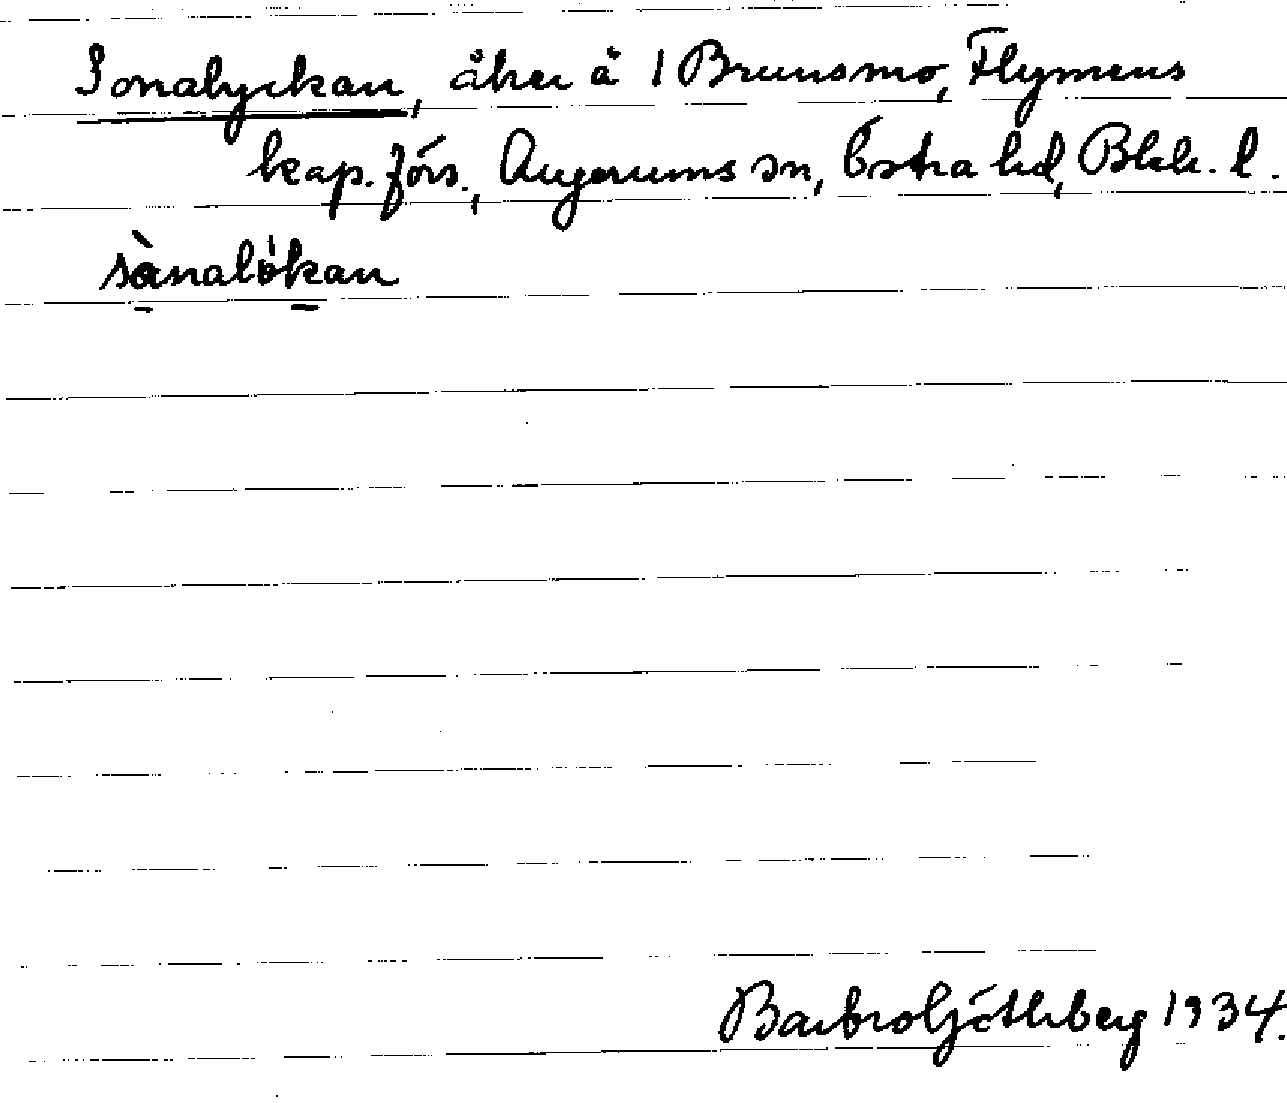 Sonalyckan, åker å 1 Brunsmo, Flymens
kap. förs., Augerums sn, Östra hd, Blek. l.
sònalökan
Barbro Göthberg 1934.